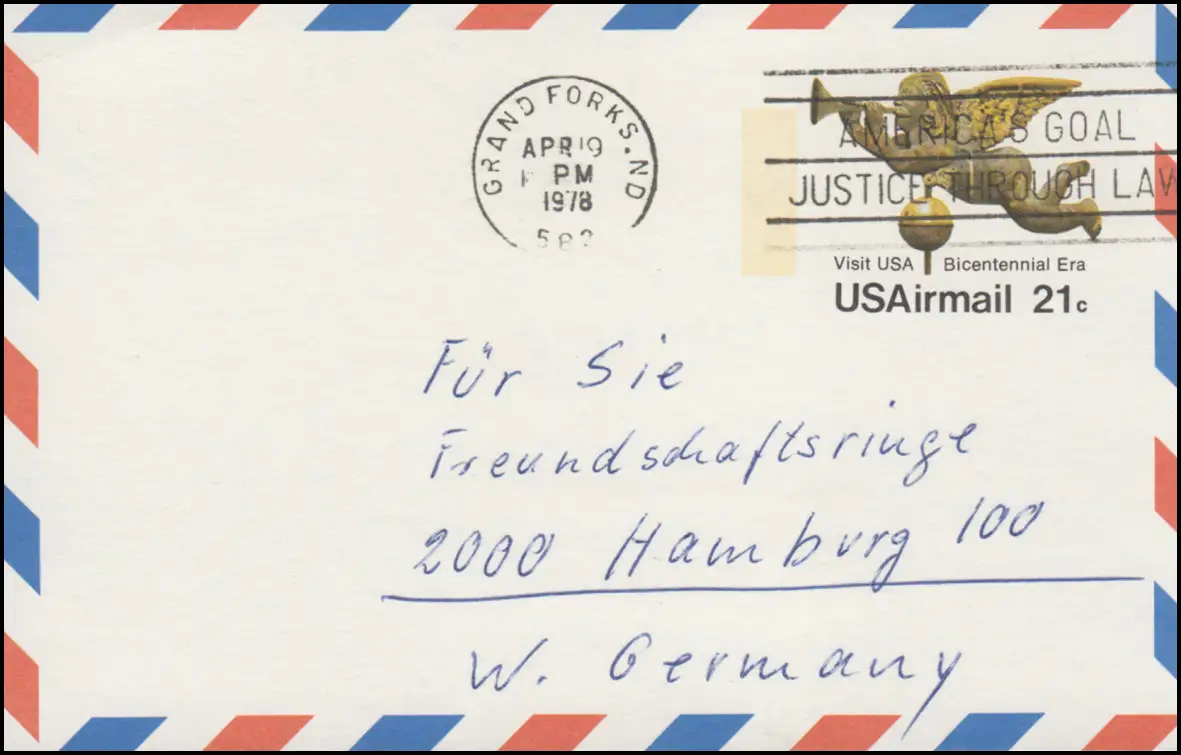 GRAND FORKS. ND
APR 19
PM
1978
582
AMERICA'S GOAL
JUSTICE THROUGH LAW
Visit USA Bicentennial Era
USAirmail 21c
Für Sie
Freundschaftsringe
2000 Hamburg 100
W. Germany